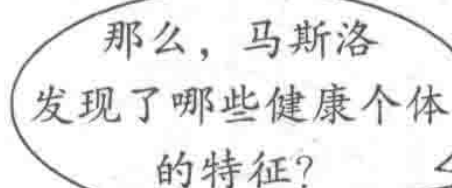 那么，马斯洛
发现了哪些健康个体
的特征？